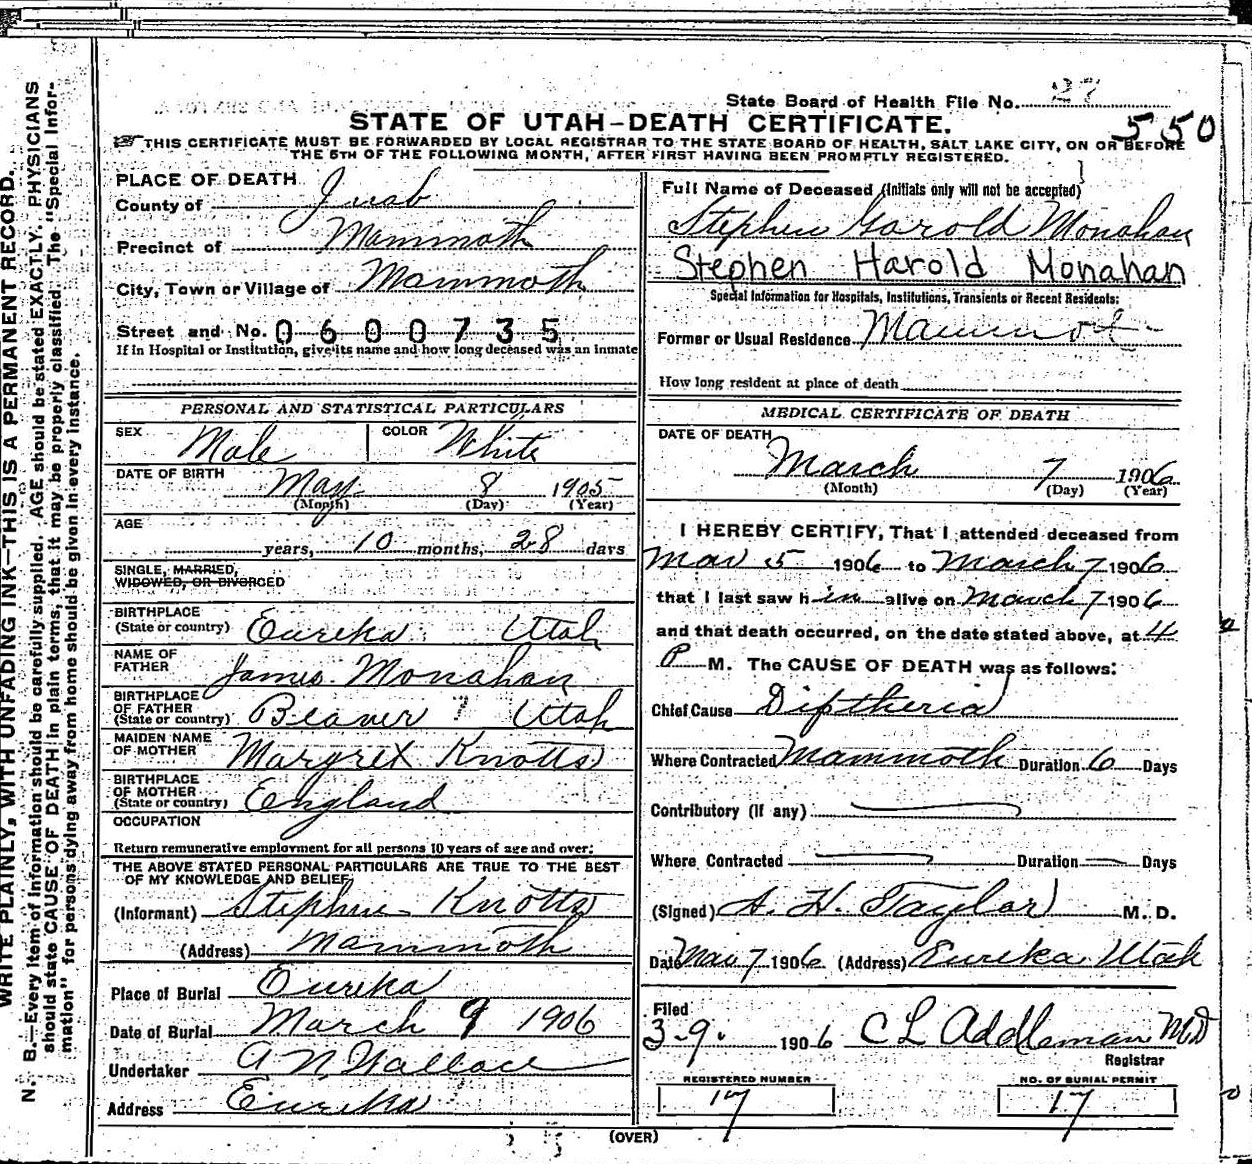 State Board of Health File No. 27
550
STATE OF UTAH—DEATH CERTIFICATE.
THIS CERTIFICATE MUST BE FORWARDED BY LOCAL REGISTRAR TO THE STATE BOARD OF HEALTH, SALT LAKE CITY, ON OR BEFORE
THE 5TH OF THE FOLLOWING MONTH, AFTER FIRST HAVING BEEN PROMPTLY REGISTERED.
WRITE PLAINLY, WITH UNFADING INK—THIS IS A PERMANENT RECORD.
N. B.—Every item of information should be carefully supplied. AGE should be stated EXACTLY. PHYSICIANS
should state CAUSE OF DEATH in plain terms, that it may be properly classified. The "Special Infor-
mation" for persons dying away from home should be given in every instance.
PLACE OF DEATH
County of Juab
Precinct of Mammoth
City, Town or Village of Mammoth
Street and No. 0600735
If in Hospital or Institution, give its name and how long deceased was an inmate
PERSONAL AND STATISTICAL PARTICULARS
SEX Male COLOR White
DATE OF BIRTH May 8 1905
(Month) (Day) (Year)
AGE
years, 10 months, 28 days
SINGLE, MARRIED,
WIDOWED, OR DIVORCED
BIRTHPLACE
(State or country) Eureka Utah
NAME OF
FATHER James Monahan
BIRTHPLACE
OF FATHER
(State or country) Beaver ? Utah
MAIDEN NAME
OF MOTHER Margret Knotts
BIRTHPLACE
OF MOTHER
(State or country) England
OCCUPATION
Return remunerative employment for all persons 10 years of age and over:
THE ABOVE STATED PERSONAL PARTICULARS ARE TRUE TO THE BEST
OF MY KNOWLEDGE AND BELIEF,
(Informant) Stephen Knotts
(Address) Mammoth
Place of Burial Eureka
Date of Burial March 9 1906
Undertaker A N Wallace
Address Eureka
Full Name of Deceased (Initials only will not be accepted)
Stephen Garold Monahan
Stephen Harold Monahan
Special Information for Hospitals, Institutions, Transients or Recent Residents:
Former or Usual Residence Mammoth
How long resident at place of death
MEDICAL CERTIFICATE OF DEATH
DATE OF DEATH
March 7 1906
(Month) (Day) (Year)
I HEREBY CERTIFY, That I attended deceased from
Mar 5 1906 to March 7 1906
that I last saw him alive on March 7 1906
and that death occurred, on the date stated above, at 4
P M. The CAUSE OF DEATH was as follows:
Chief Cause Diptheria
Where Contracted Mammoth Duration 6 Days
Contributory (if any)
Where Contracted Duration Days
(Signed) A. H. Taylor M. D.
Date Mar 7 1906 (Address) Eureka Utah
Filed
3-9. 1906 C L Addleman MD
Registrar
REGISTERED NUMBER
17
NO. OF BURIAL PERMIT
17
(OVER)